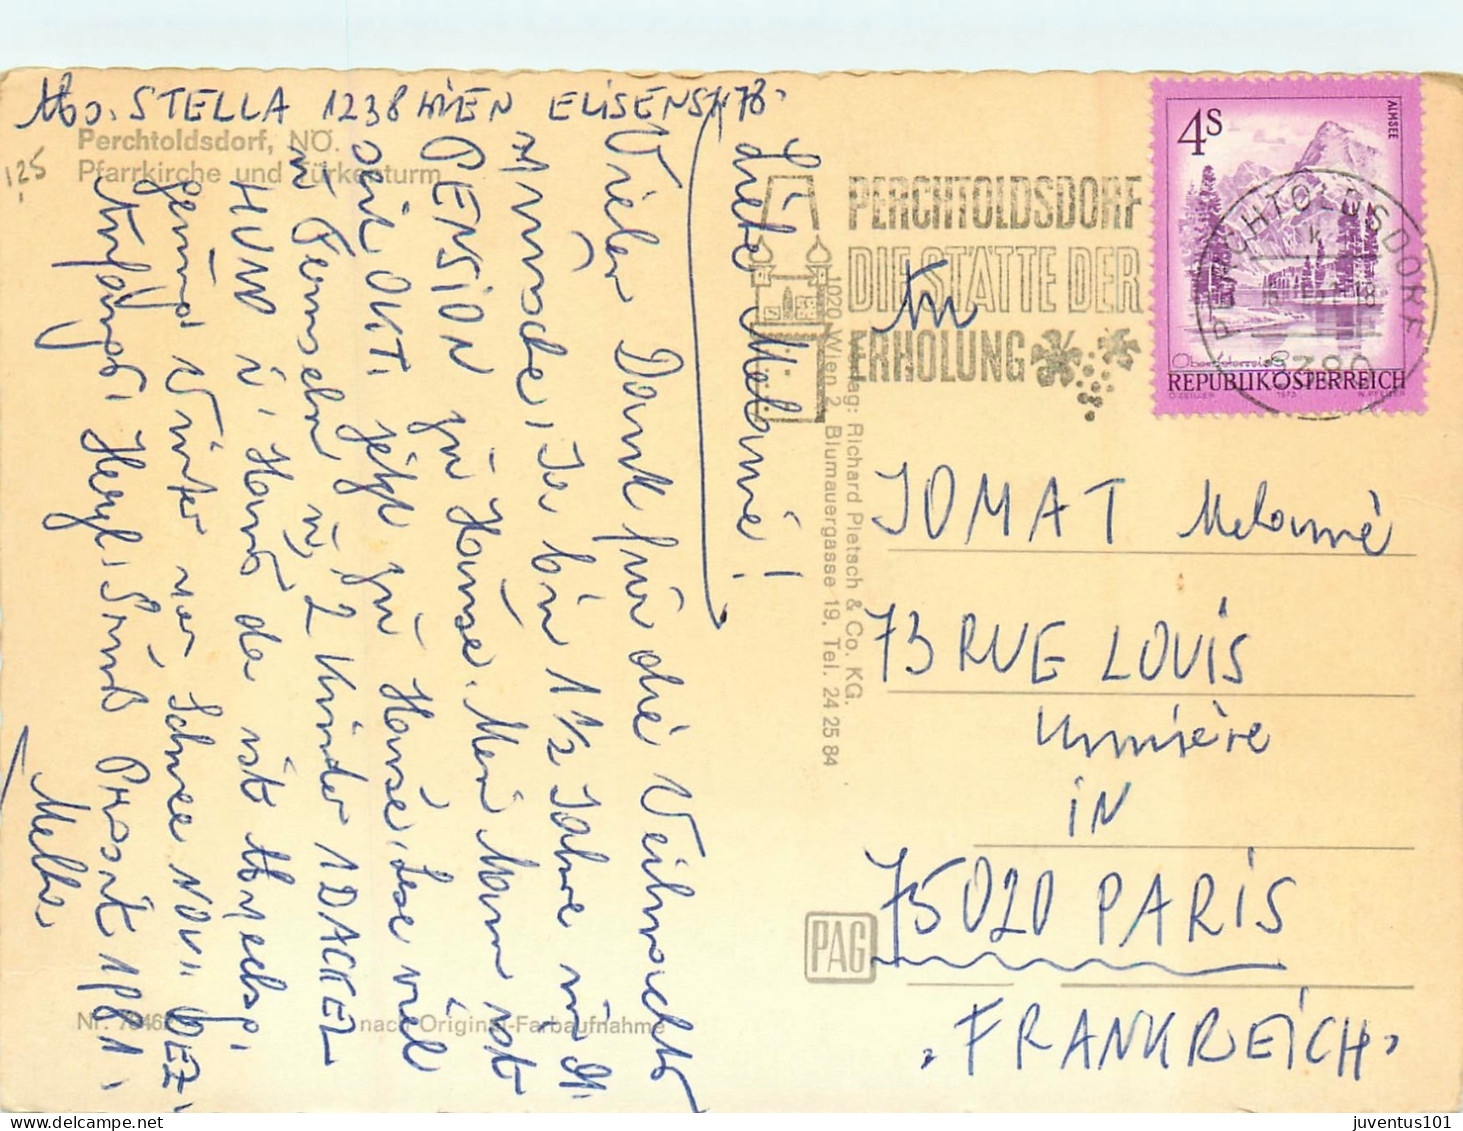 Abs. STELLA 1238 WIEN ELISENSTR 78.
Perchtoldsdorf, NÖ.
Pfarrkirche und Türkenturm
125
Liebe Melanie!
Vielen Dank für die Weihnachts
wünsche, Ja bin 1 1/2 Jahre in d.
PENSION zu Hause. Mein Mann ist
seit OKT. jetzt zu Hause, Lese viel
u Fernsehn u, 2 Kinder 1 DACKEL
HUND i, Haus da ist Abwechsl,
genug Winter mit Schnee NOV. DEZ,
Anfangs, Herzl, Grüße Prosit 1981,
Mella
PERCHTOLDSDORF
DIE STÄTTE DER
ERHOLUNG
4S
ALMSEE
Oberösterreich
REPUBLIK ÖSTERREICH
1973
PERCHTOLDSDORF
2380
Verlag: Richard Pietsch & Co. KG.
1020 Wien 2, Blumauergasse 19, Tel. 24 25 84
An
JOMAT Melanie
73 RUE LOUIS
Lumière
IN
75020 PARIS
FRANKREICH
PAG
nach Original-Farbaufnahme
juventus101